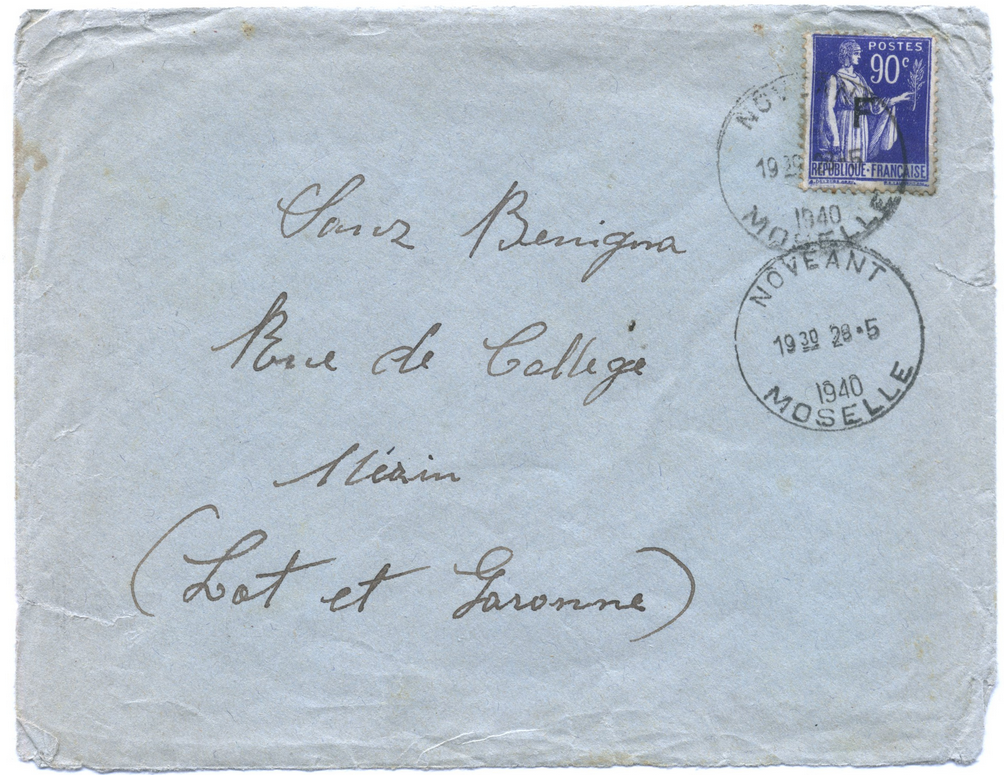 POSTES
90c
F
REPUBLIQUE-FRANÇAISE
NOV
19 30
1940
MOSELLE
Sanz Benigna
NOVEANT
19 30 28-5
1940
MOSELLE
Rue de Collège
Nérin
(Lot et Garonne)